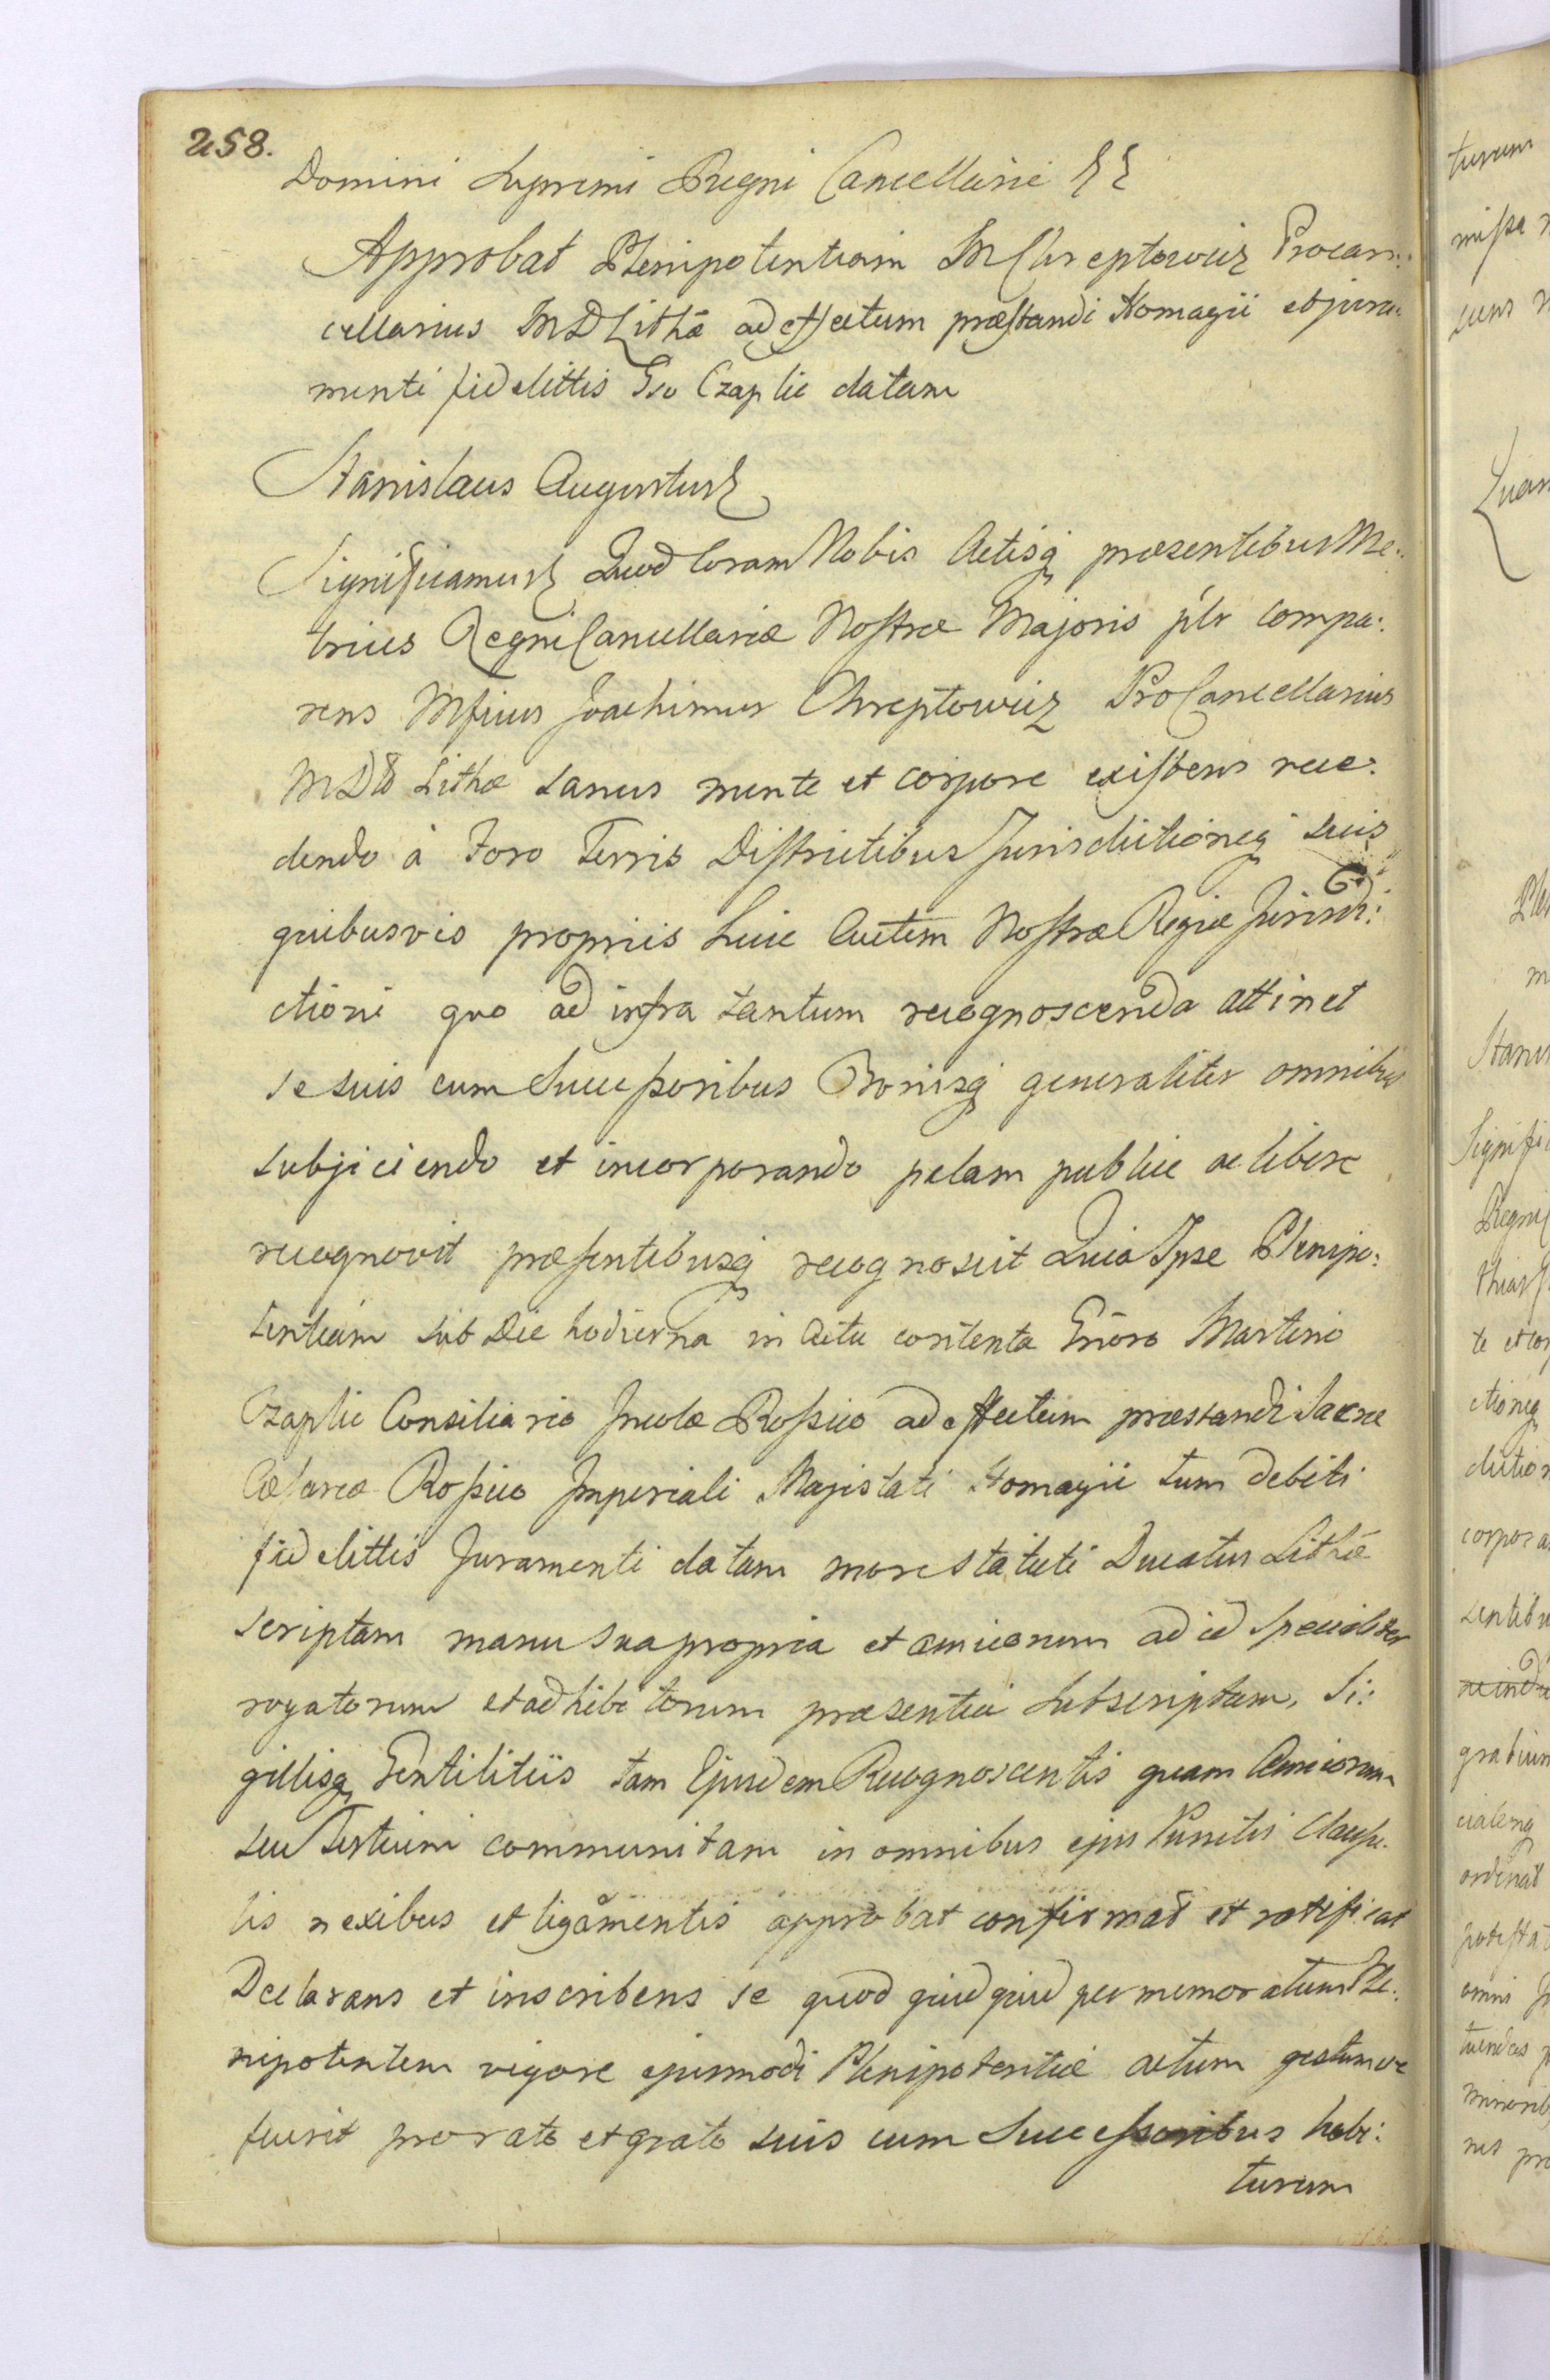 258.
Domini Supremi Regni Cancellarii
Approbat Plenipotentiam M Chreptowicz Procan:
cellarius MDLithæ ad effectum præstandi Homagii et jura:
menti fidelittis Gso Czaplic datam
Stanislaus Augustus
Significamus Quod Coram Nobis Actisq præsentibus Me:
trices Regni Cancellariæ Nostræ Majoris plr compa:
rens Mficus Joachimus Chreptowicz ProCancellarius
MD Lithæ sanus mente et corpore existens rece:
dendo à Foro Terris Districtibus Jurisdictioneq suis
quibusvis propriis huic Autem Nostræ Regiæ Jurisdi:
ctioni quo ad infra tantum recognoscenda attinet
se suis cum Successoribus Bonisq generaliter omnibus
subjiciendo et incorporando palam publice ac libere
recognovit præsentibusq recognoscit Quia Ipse Plenipo:
tentiam sub Die hodierna in Actu contenta Gñoso Martino
Czaplic Consiliario Incolæ Rossico ad effectum præstandi Sacræ
Cæsareæ Rossico Imperiali Majistati Homagii tum debiti
fidelittis Juramenti datam more statuti Ducatus Lithæ
scriptam manu sua propria et amicorum ad id specialiter
rogatorum et adhibitorum præsentia subscriptam, Si:
gillisq Gentilitiis tam Ejusdem Recognoscentis quam Amicorum
seu Testium communitam in omnibus ejus Punctis Clausu:
lis nexibus et ligamentis approbat confirmat et ratificat
Declarans et inscribens se quod quidquid per memoratum Ple:
nipotentem vigore ejusmodi Plenipotentiæ actum gestumve
fuerit pro rato et grato suis cum Successoribus habi:
turum